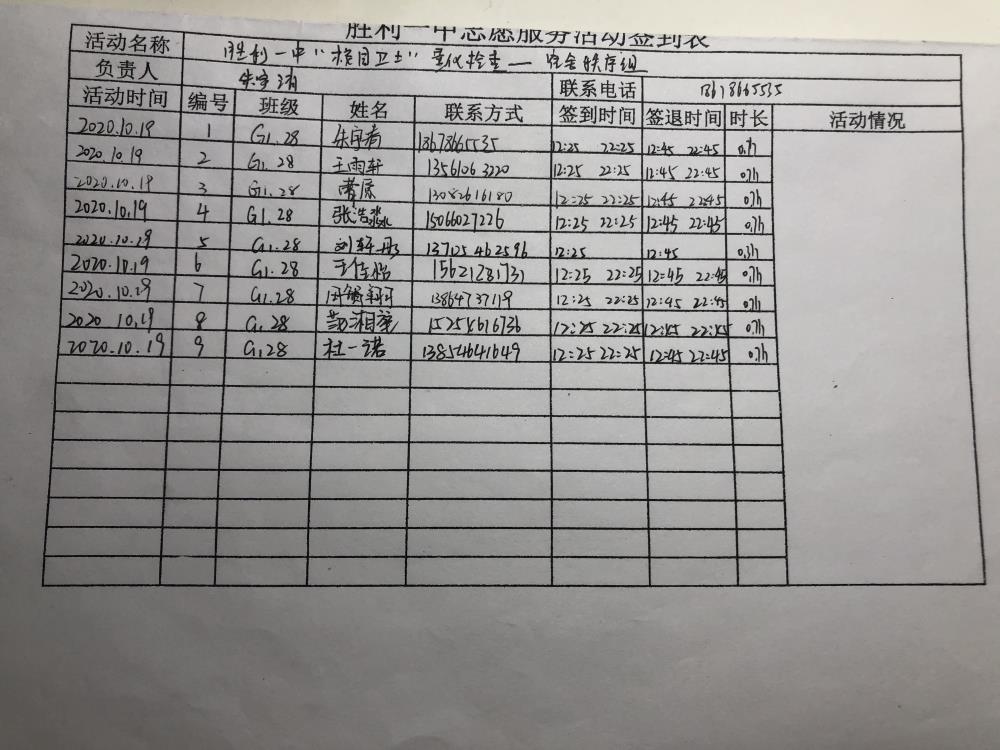 胜利一中志愿服务活动签到表
活动名称 胜利一中"校园卫士"重仪检查—宿舍秩序组
负责人 朱宇 联系电话
活动时间 编号 班级 姓名 联系方式 签到时间 签退时间 时长 活动情况
2020.10.19 1 G1.28 朱宇 13678665535 12:25 22:25 12:45 22:45 0.7h
2020.10.19 2 G1.28 王雨轩 13561063220 12:25 22:25 12:45 22:45 0.7h
2020.10.19 3 G1.28 13082616180 12:25 22:25 12:45 22:45 0.7h
2020.10.19 4 G1.28 张浩淼 15066027226 12:25 22:25 12:45 22:45 0.7h
2020.10.19 5 G1.28 刘轩彤 13705462596 12:25 12:45 0.3h
2020.10.19 6 G1.28 王佳怡 15621281731 12:25 22:25 12:45 22:45 0.7h
2020.10.19 7 G1.28 13864737119 12:25 22:25 12:45 22:45 0.7h
2020.10.19 8 G1.28 15254616736 12:25 22:25 12:45 22:45 0.7h
2020.10.19 9 G1.28 杜一诺 13854641649 12:25 22:25 12:45 22:45 0.7h